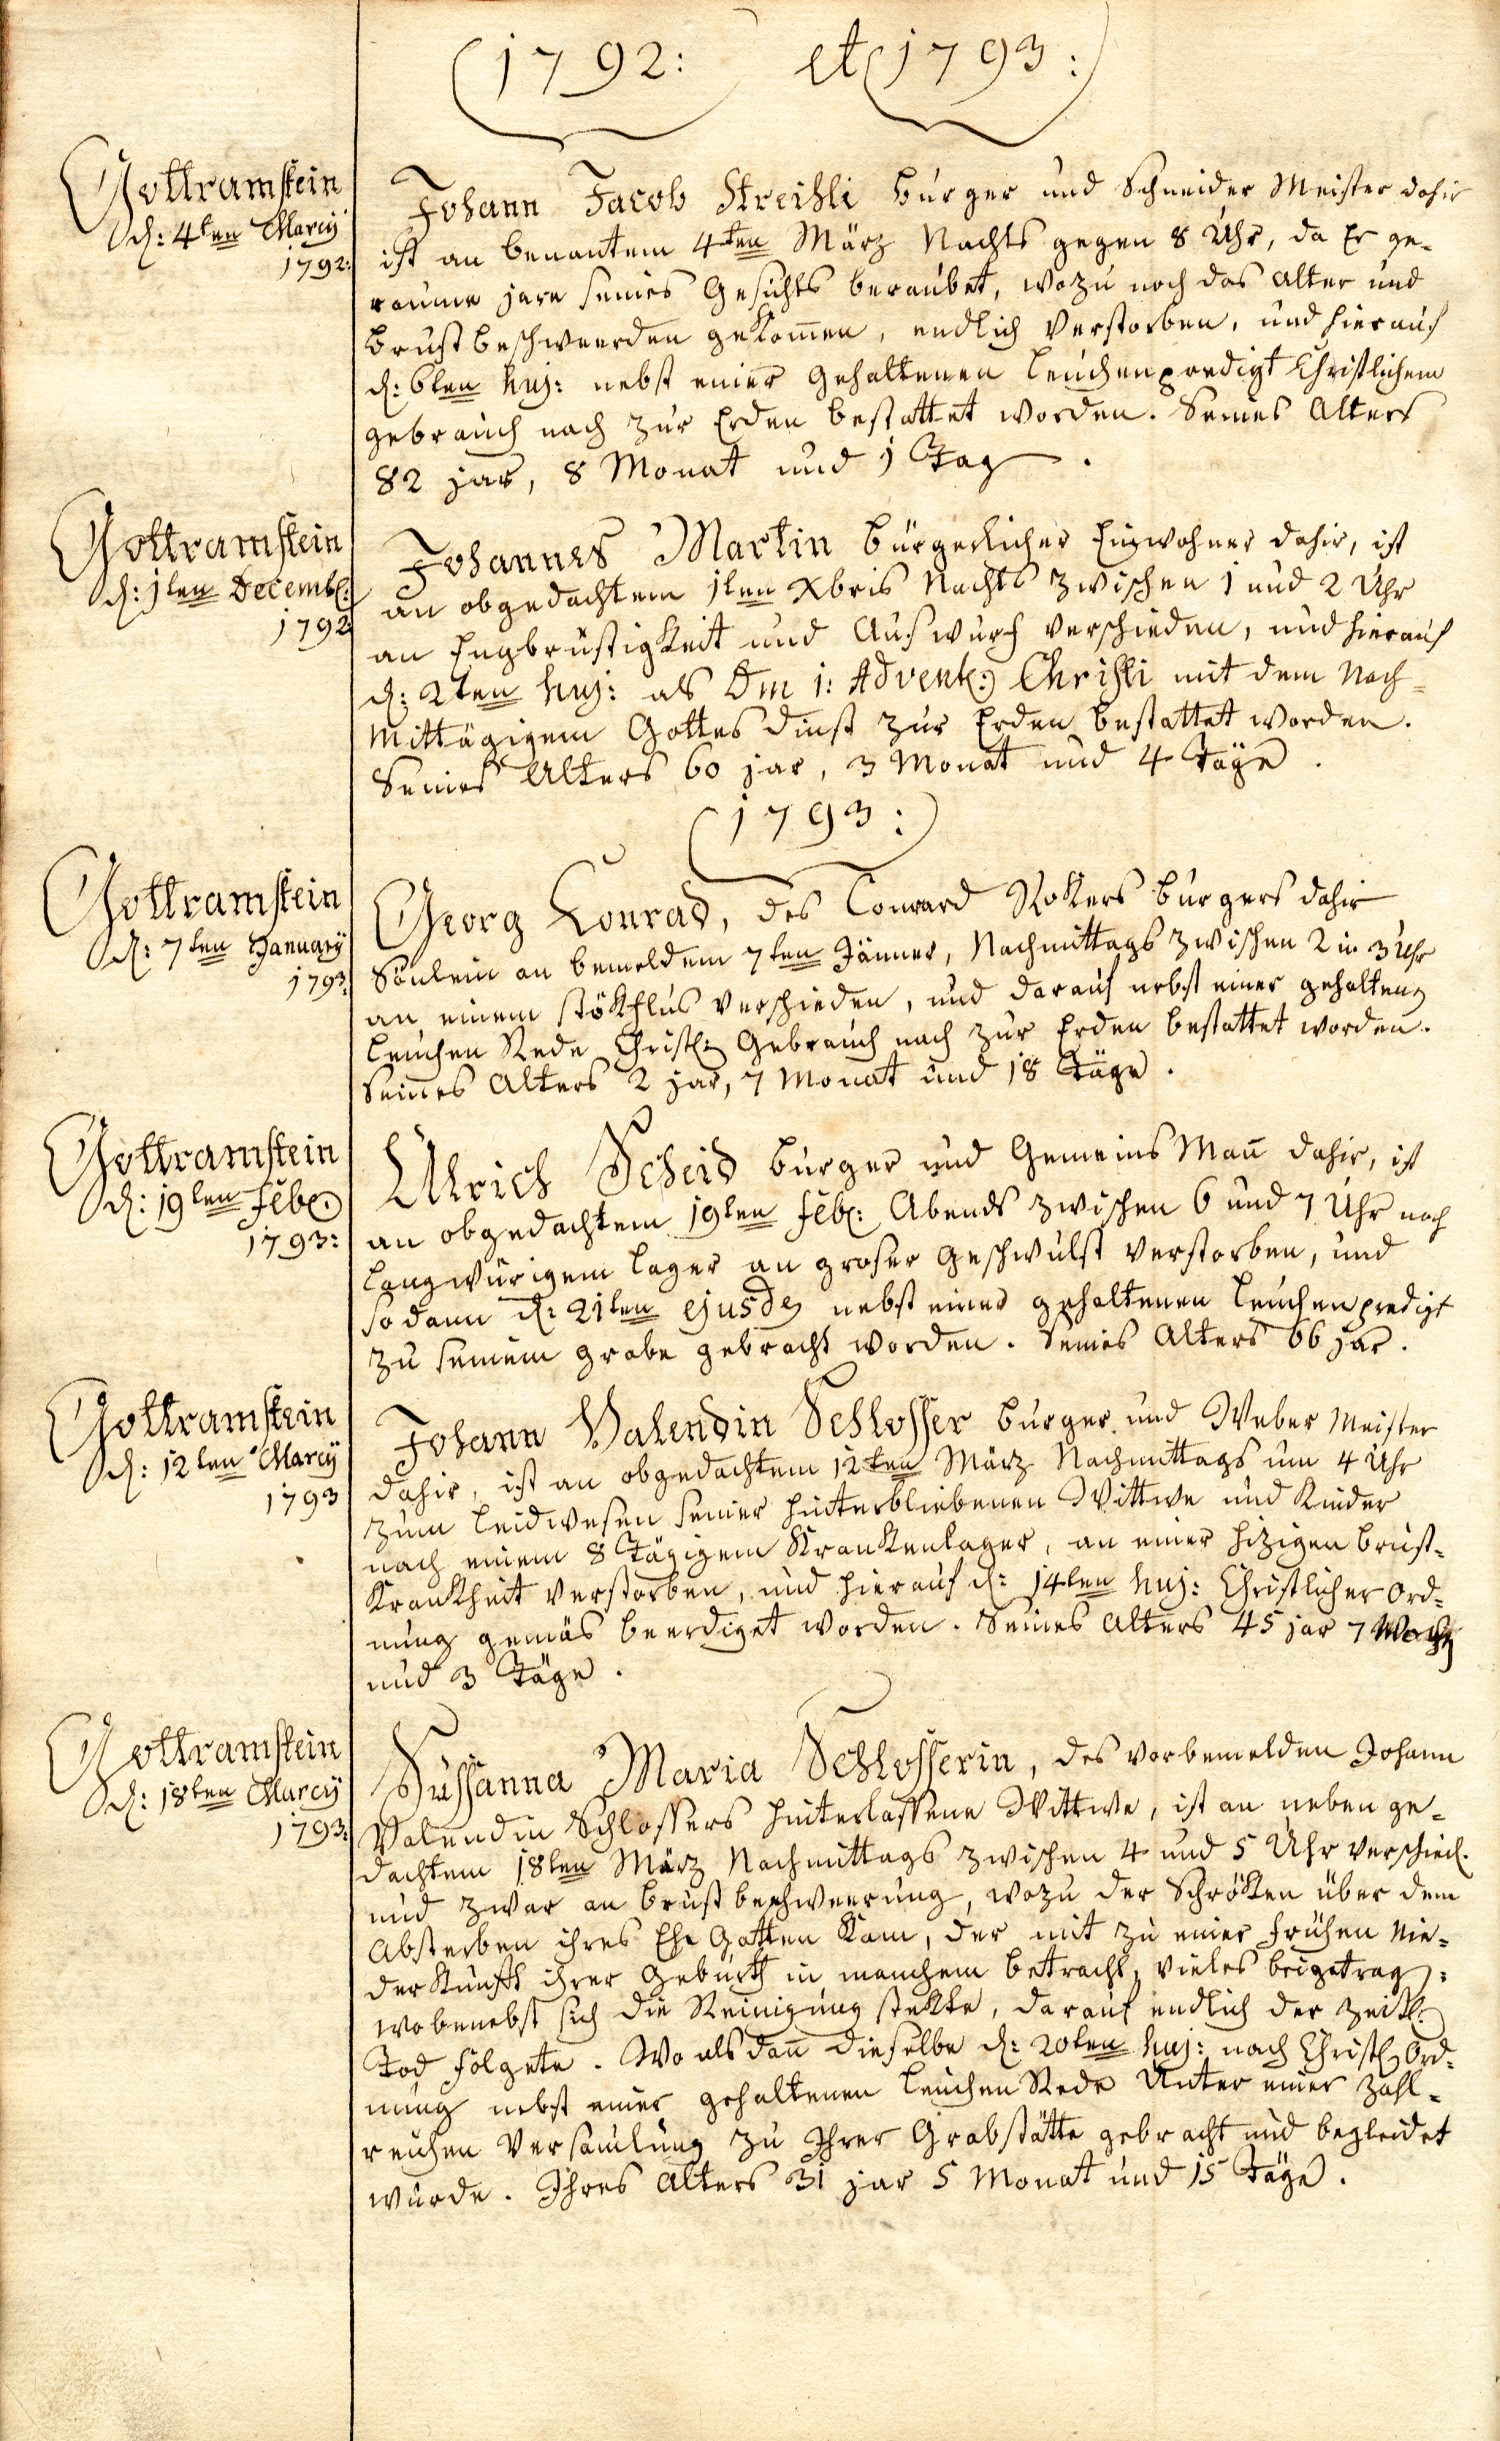 1792: et 1793:
Gottramstein
d: 4ten Marcij
1792:
Johann Jacob Streihli burger und Schneider Meister dahir
ist an benantem 4ten März Nachts gegen 8 Uhr, da Er ge-
raume jare seines Gesichts beraubet, wozu noch das Alter und
Brustbeschwerden gekom̄en, endlich verstorben, und hierauf
d: 6ten huj: nebst einer gehaltenen Leichenpredigt Christlichem
gebrauch nach zur Erden bestattet worden. Seines Alters
82 jar, 8 Monat und 1 Tag.
Gottramstein
d: 1ten Decemb:
1792
Johannes Martin bürgerlicher Einwohner dahir, ist
an obgedachtem 1ten Xbris Nachts zwischen 1 und 2 Uhr
an Engbrüstigkeit und Auswurf verschieden, und hierauf
d: 2ten huj: als Dm 1: Advent: Christi mit dem Nach-
mittägigem Gottesdinst zur Erden bestattet worden.
Seines Alters 60 jar, 3 Monat und 4 Täge.
1793:
Gottramstein
d: 7ten January
1793:
Georg Conrad, des Conrard Rokers burgers dahir
Sönlein an bemeldem 7ten Jänner, Nachmittags zwischen 2 u 3 Uhr
an einem stökflus verschieden, und darauf nebst einer gehalten
Leichen Rede Christl: Gebrauch nach zur Erden bestattet worden.
Seines Alters 2 jar, 7 Monat und 18 Täge.
Gottramstein
d: 19ten Feb:
1793:
Ulrich Scheid burger und Gemeins Man̄ dahir, ist
an obgedachtem 19ten Feb: Abends zwischen 6 und 7 Uhr nach
langwürigem Lager an groser Geschwulst verstorben, und
so dann d: 21ten ejusd nebst einer gehaltenen Leichenpredigt
zu seinem grabe gebracht worden. Seines Alters 66 jar.
Gottramstein
d: 12ten Marcij
1793
Johann Valendin Schlosser burger und Weber Meister
dahir, ist an obgedachtem 12ten März Nachmittags um 4 Uhr
zum Leidwesen seiner hinterbliebenen Wittwe und Kinder
nach einem 8 Tägigem Krankenlager, an einer hizigen Brust-
Krankheit verstorben, und hierauf d: 14ten huj: Christlicher Ord-
nung gemäs beerdiget worden. Seines Alters 45 jar 7 Woch
und 3 Täge.
Gottramstein
d: 18ten Marcij
1793:
Sussanna Maria Schlosserin, des vorbemelden Johann
Valendin Schlossers hinterlassene Wittwe, ist an neben ge-
dachtem 18ten März Nachmittags zwischen 4 und 5 Uhr verschied.
und zwar an Brustbeschweerung, wozu der Schröken über dem
Absterben ihres Ehe Gatten kam, der mit zu einer frühen Nie-
derkunft ihrer Geburth in manchem betracht, vieles beigetrag:
wobenebst sich die Reinigung stekte, darauf endlich der zeitl:
Tod folgete. Wo als dan̄ dieselbe d: 20ten huj: nach Christl: Ord-
nung nebst einer gehaltenen Leichen Rede Unter einer zahl-
reichen Versam̄lung zu Ihrer Grabstätte gebracht und begleidet
wurde. Ihres Alters 31 jar 5 Monat und 15 Täge.